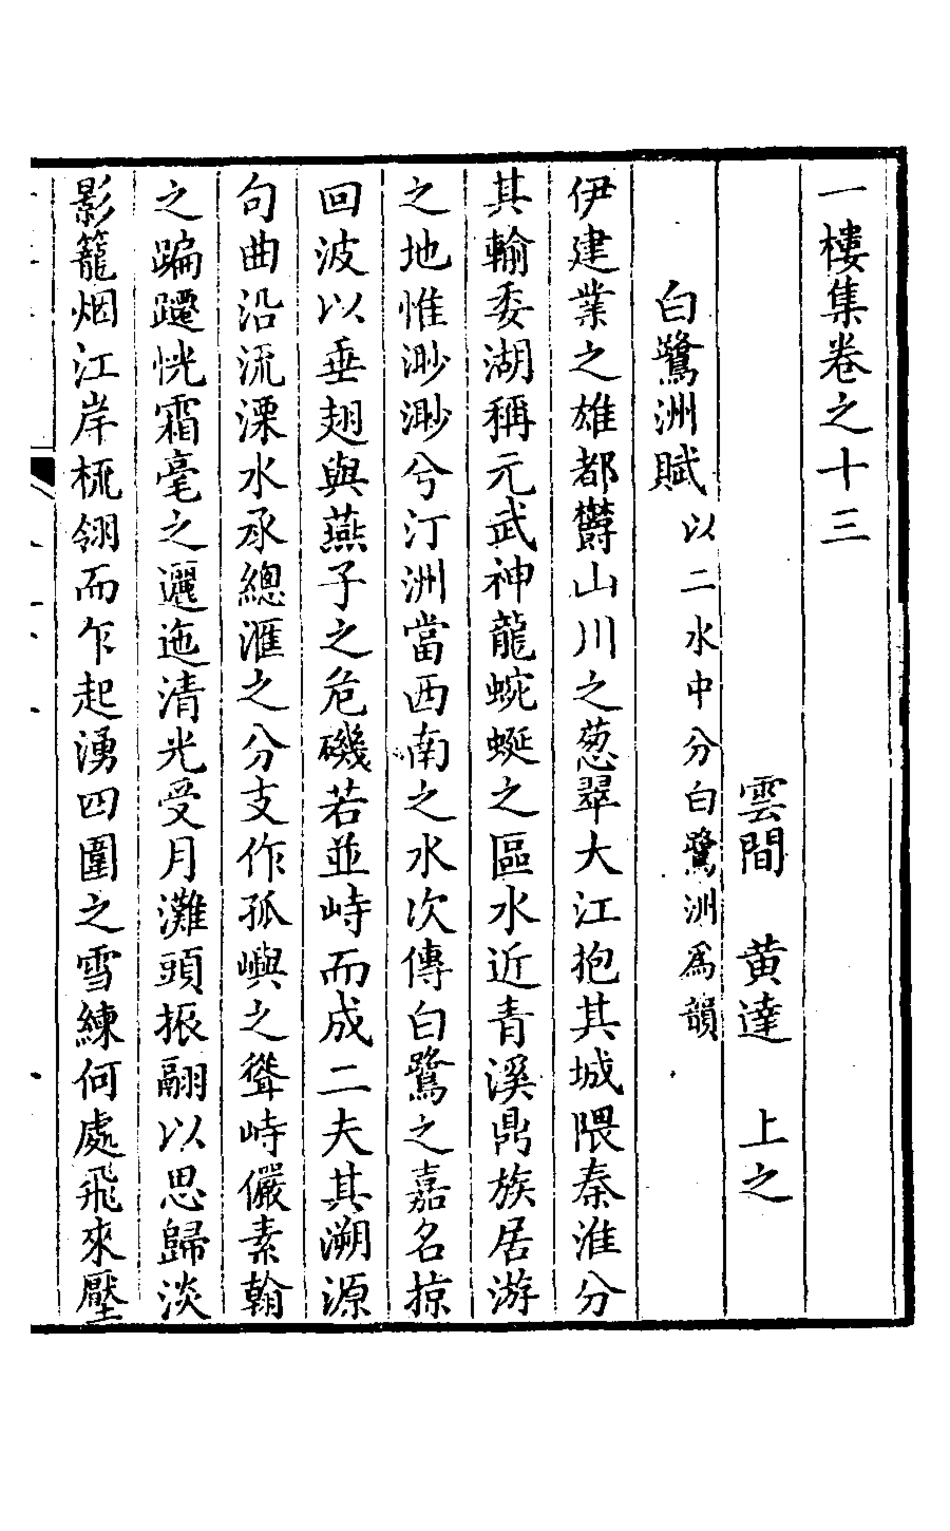 一樓集卷之十三
雲間　黄達　上之
白鷺洲賦以二水中分白鷺洲爲韻
伊建業之雄都欝山川之葱翠大江抱其城隈秦淮分
其輸委湖稱元武神龍蜿蜒之區水近青溪鼎族居游
之地惟渺渺兮汀洲當西南之水次傳白鷺之嘉名掠
回波以垂翅與燕子之危磯若並峙而成二夫其溯源
句曲沿流溧水承總滙之分支作孤嶼之聳峙儼素翰
之蹁躚恍霜毫之邐迤清光受月灘頭振翮以思歸淡
影籠烟江岸梳翎而乍起湧四圍之雪練何處飛來壓